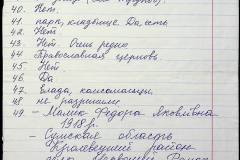 40. Нет.
41. парк, кладбище. Да, есть
42. Нет
43. Нет. Очень редко
44. Православная церковь.
45. Нет.
46. Да
47. Влада, комсомольцы.
48 не разрешили
49 - Малик Федора Яковлівна
1918 р.
- Сумська область
Кролевецкий район